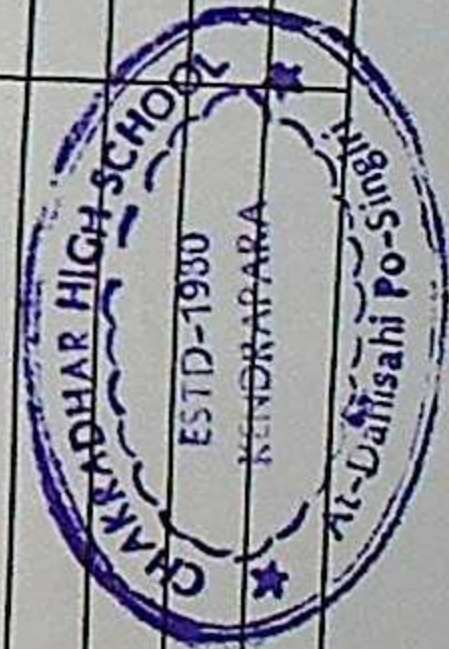 CHAKRADHAR HIGH SCHOOL
ESTD-1980
KENDRAPARA
At-Dallisahi Po-Singhi